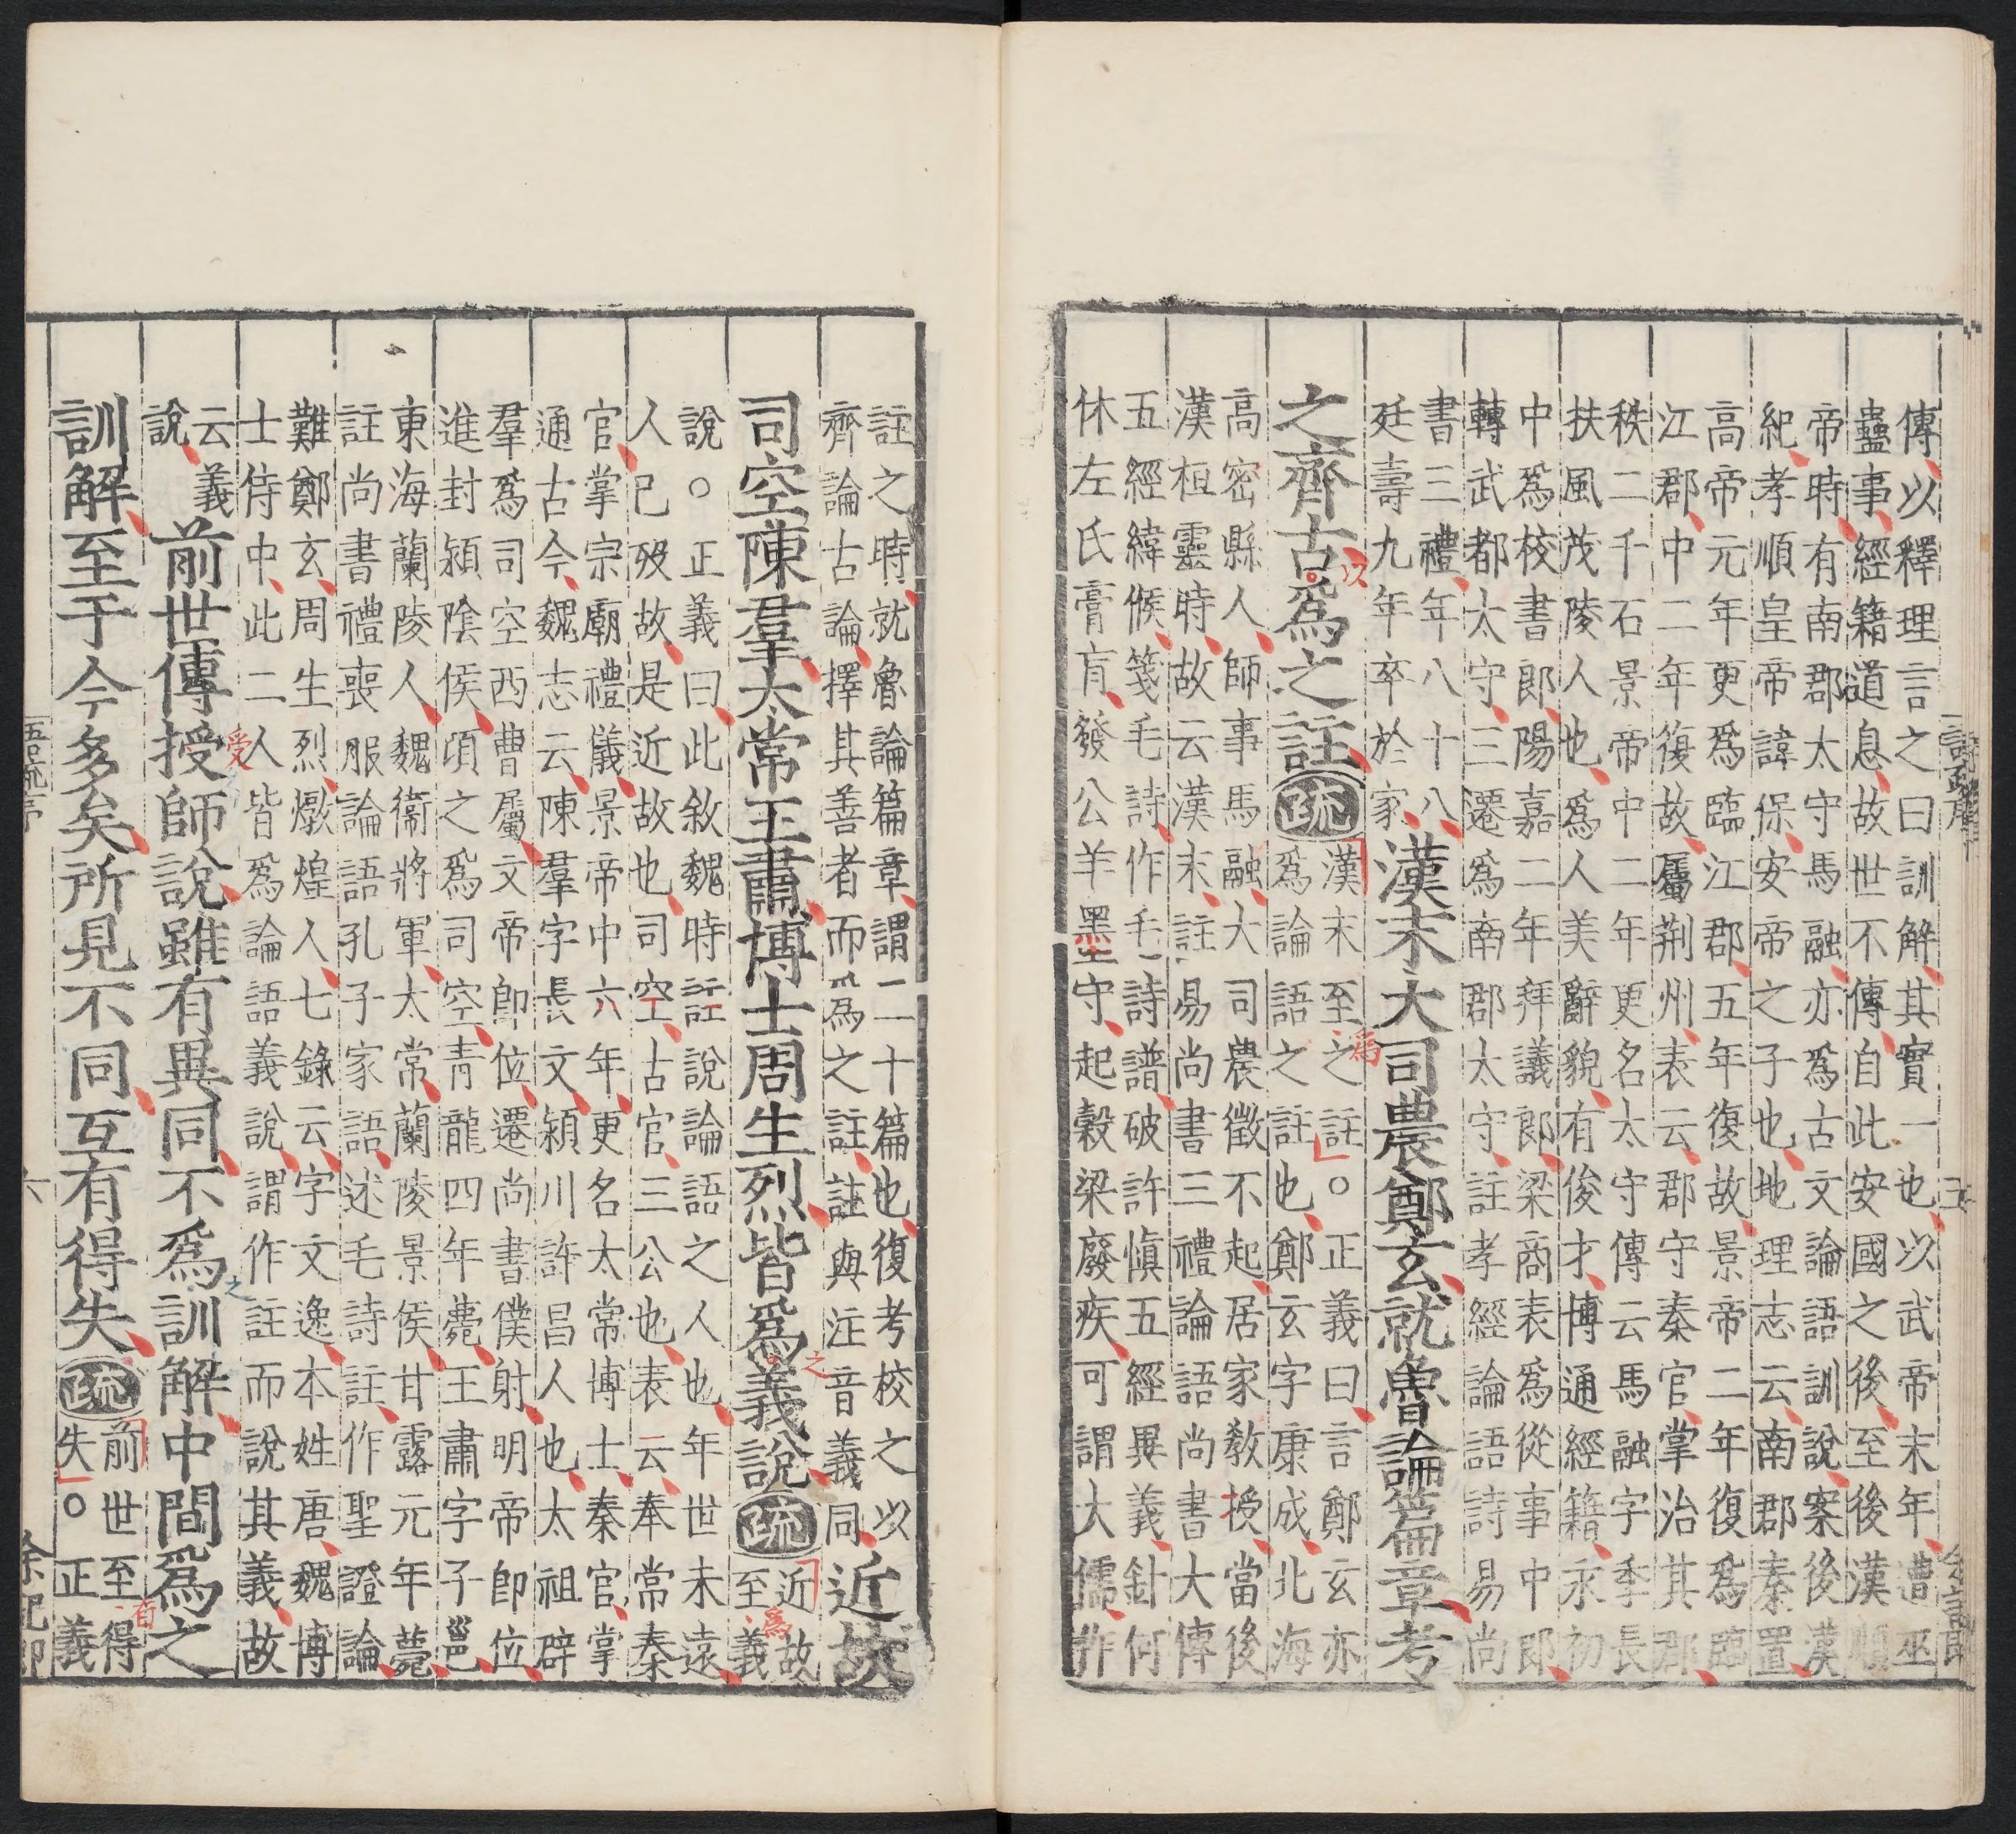 傳以釋理言之曰訓解其實一也以武帝末年遭巫
蠱事經籍道息故世不傳自此安國之後至後漢順
帝時有南郡太守馬融亦爲古文論語訓說案後漢
紀孝順皇帝諱保安帝之子也地理志云南郡秦置
高帝元年更爲臨江郡五年復故景帝二年復爲臨
江郡中二年復故屬荆州表云郡守秦官掌治其郡
秩二千石景帝中二年更名太守傳云馬融字季長
扶風茂陵人也爲人美辭貌有俊才博通經籍永初
中爲校書郎陽嘉二年拜議郎梁商表爲從事中郎
轉武都太守三遷爲南郡太守註孝經論語詩易尚
書三禮年八十八
廷壽九年卒於家
漢末大司農鄭玄就魯論篇章考
之齊古爲之註疏
以
漢末至之註○正義曰言鄭玄亦
爲
爲論語之註也鄭玄字康成北海
高密縣人師事馬融大司農徵不起居家教授當後
漢桓靈時故云漢末註易尚書三禮論語尚書大傳
五經緯候箋毛詩作毛詩譜破許愼五經異義針何
休左氏膏肓發公羊墨守起穀梁廢疾可謂大儒作
註之時就魯論篇章謂二十篇也復考校之以
齊論古論擇其善者而爲之註註與注音義同
近故
司空陳羣太常王肅博士周生烈皆爲義說疏
之
近故
至義
爲
說○正義曰此敘魏時註說論語之人也年世未遠
人已歿故是近故也司空古官三公也表云奉常秦
官掌宗廟禮儀景帝中六年更名太常博士秦官掌
通古今魏志云陳羣字長文潁川許昌人也太祖辟
羣爲司空西曹屬文帝即位遷尚書僕射明帝即位
進封潁陰侯頃之爲司空青龍四年薨王肅字子邕
東海蘭陵人魏衛將軍太常蘭陵景侯甘露元年薨
註尚書禮喪服論語孔子家語述毛詩註作聖證論
難鄭玄周生烈燉煌人七錄云字文逸本姓唐魏博
士侍中此二人皆爲論語義說謂作註而說其義故
云義
說
前世傳授師說雖有異同不爲訓解中間爲之
受
之
訓解至于今多矣所見不同互有得失疏
前世至得
有
失○正義
六